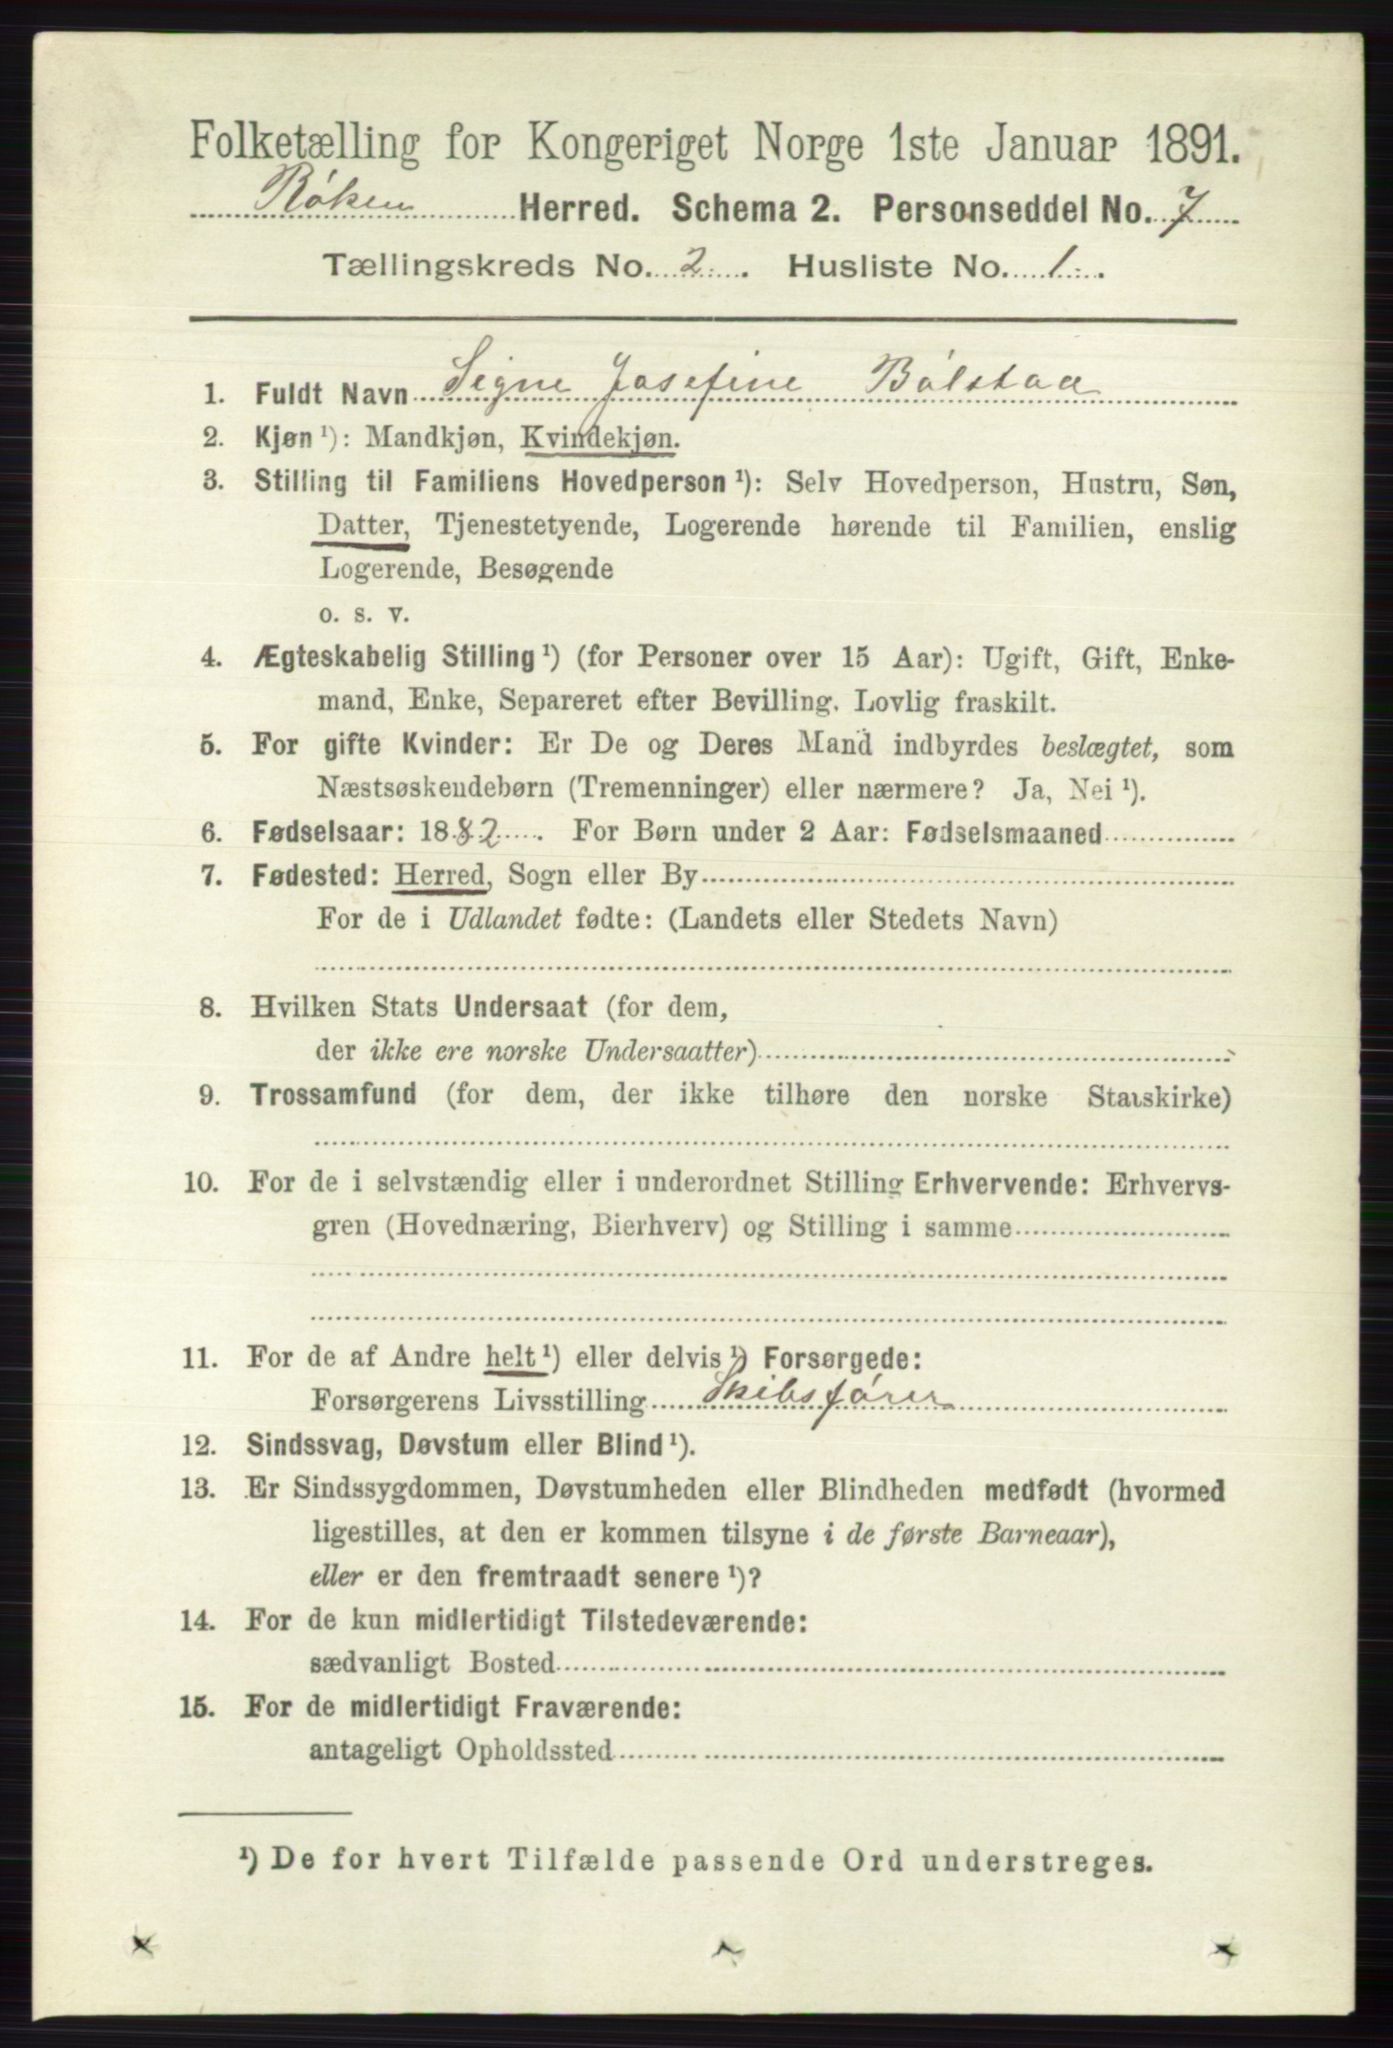 Folketælling for Kongeriget Norge 1ste Januar 1891.
Røken Herred. Schema 2. Personseddel No. 7
Tællingskreds No. 2. Husliste No. 1.
1. Fuldt Navn Signe Josefine Bølstad
2. Kjøn¹): Mandkjøn, Kvindekjøn.
3. Stilling til Familiens Hovedperson¹): Selv Hovedperson, Hustru, Søn,
Datter, Tjenestetyende, Logerende hørende til Familien, enslig
Logerende, Besøgende
o. s. v.
4. Ægteskabelig Stilling¹) (for Personer over 15 Aar): Ugift, Gift, Enke-
mand, Enke, Separeret efter Bevilling. Lovlig fraskilt.
5. For gifte Kvinder: Er De og Deres Mand indbyrdes beslægtet, som
Næstsøskendebørn (Tremenninger) eller nærmere? Ja, Nei¹).
6. Fødselsaar: 1882. For Børn under 2 Aar: Fødselsmaaned
7. Fødested: Herred, Sogn eller By
For de i Udlandet fødte: (Landets eller Stedets Navn)
8. Hvilken Stats Undersaat (for dem,
der ikke ere norske Undersaatter)
9. Trossamfund (for dem, der ikke tilhøre den norske Statskirke)
10. For de i selvstændig eller i underordnet Stilling Erhvervende: Erhvervs-
gren (Hovednæring, Bierhverv) og Stilling i samme
11. For de af Andre helt¹) eller delvis¹) Forsørgede:
Forsørgerens Livsstilling Skibsfører
12. Sindssvag, Døvstum eller Blind¹).
13. Er Sindssygdommen, Døvstumheden eller Blindheden medfødt (hvormed
ligestilles, at den er kommen tilsyne i de første Barneaar),
eller er den fremtraadt senere¹)?
14. For de kun midlertidigt Tilstedeværende:
sædvanligt Bosted
15. For de midlertidigt Fraværende:
antageligt Opholdssted
¹) De for hvert Tilfælde passende Ord understreges.